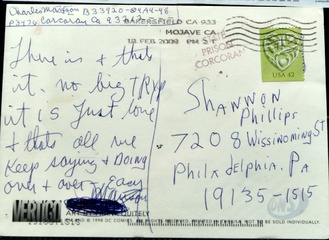 Charles Manson B33920-
Corcoran Ca 932
BAKERSFIELD CA 933
MOJAVE CA
18 FEB 2009 PM
STATE
PRISON
CORCORAN
USA 42
There is + thats
it. no big TRIP
it is Just love
+ thats all we
Keep saying + Doing
over + over Easy
SHANNON
Phillips
7208 Wissinoming St
Philadelphia. Pa
19135-1515
VERTIGO